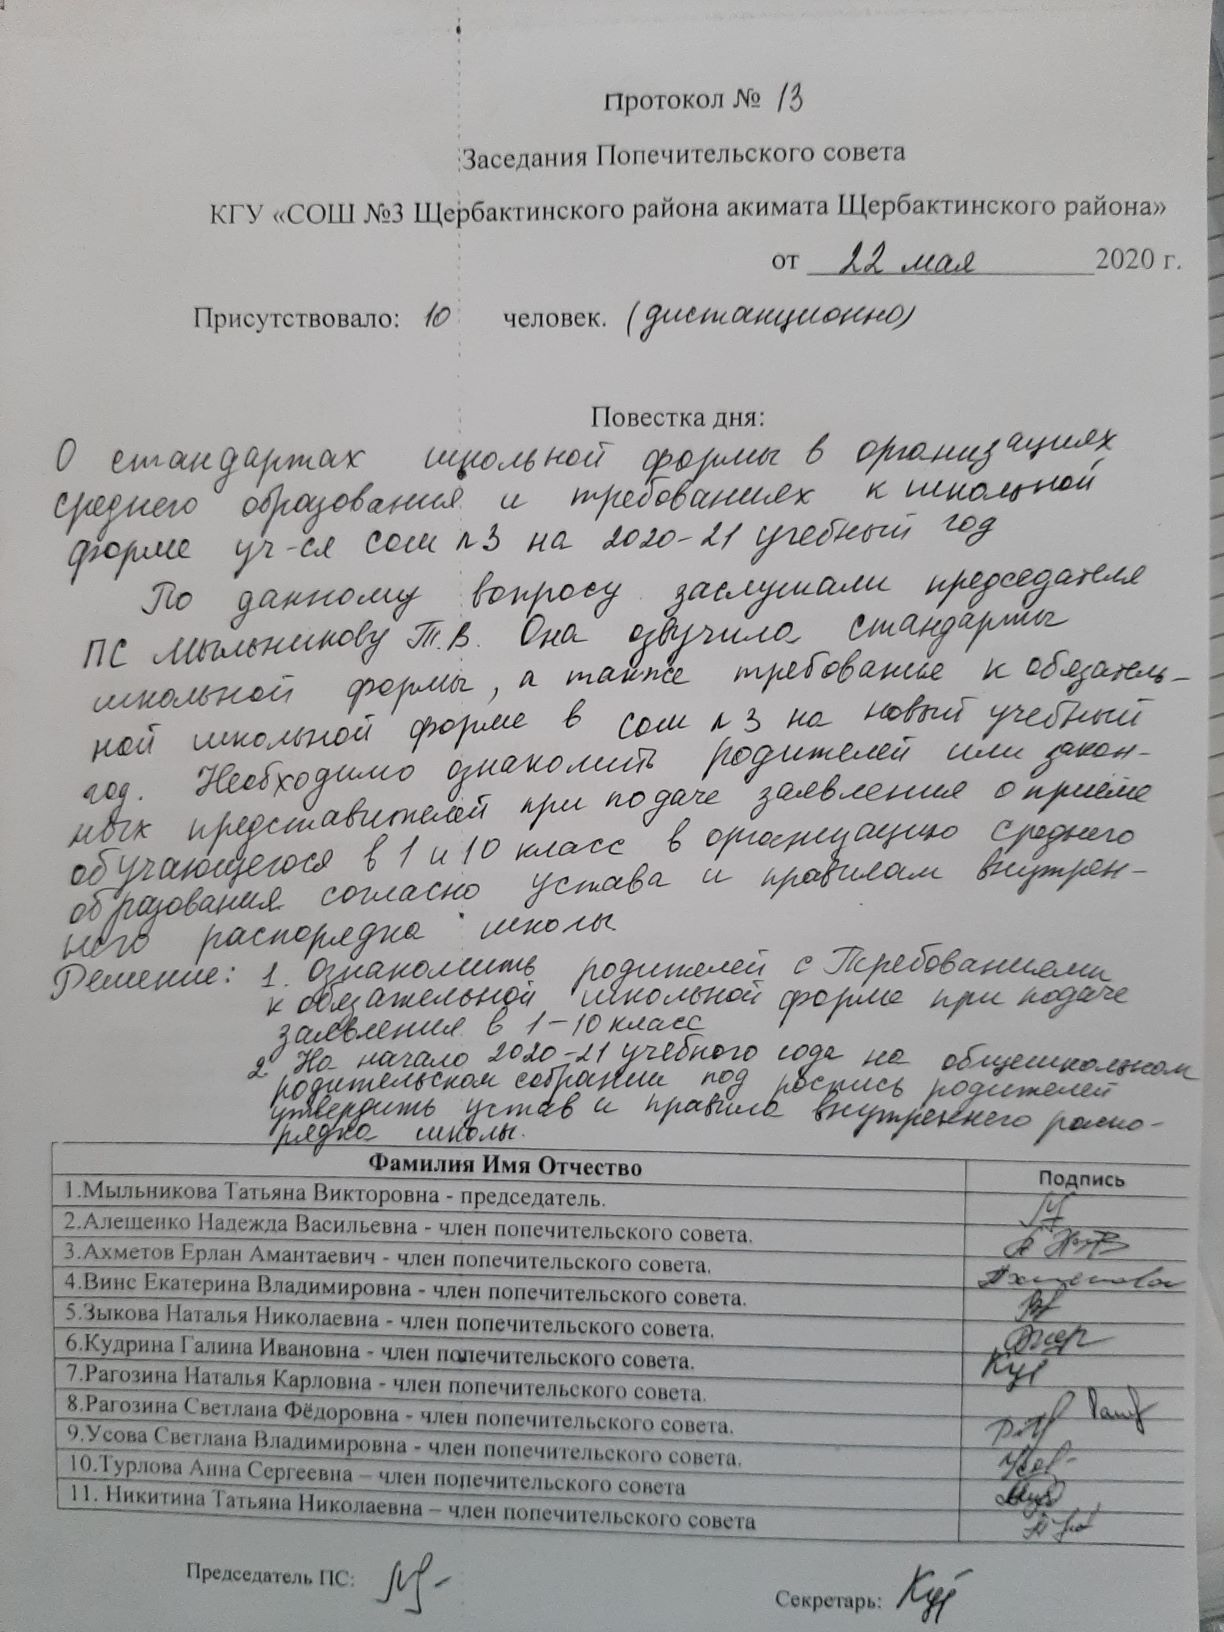 Протокол № 13
Заседания Попечительского совета
КГУ «СОШ №3 Щербактинского района акимата Щербактинского района»
от 22 мая 2020 г.
Присутствовало: 10 человек. (дистанционно)
Повестка дня:
О стандартах школьной формы в организациях
среднего образования и требованиях к школьной
форме уч-ся сош №3 на 2020-21 учебный год
По данному вопросу заслушали председателя
ПС Мыльникову Т.В. Она озвучила стандарты
школьной формы, а также требование к обязатель-
ной школьной форме в сош №3 на новый учебный
год. Необходимо ознакомить родителей или закон-
ных представителей при подаче заявления о приёме
обучающегося в 1 и 10 класс в организацию среднего
образования согласно устава и правилам внутрен-
него распорядка школы
Решение: 1. Ознакомить родителей с Требованиями
к обязательной школьной форме при подаче
заявления в 1-10 класс
2. На начало 2020-21 учебного года на общешкольном
родительском собрании под роспись родителей
утвердить устав и правила внутреннего распо-
рядка школы.
Фамилия Имя Отчество Подпись
1.Мыльникова Татьяна Викторовна - председатель.
2.Алещенко Надежда Васильевна - член попечительского совета.
3.Ахметов Ерлан Амантаевич - член попечительского совета.
4.Винс Екатерина Владимировна - член попечительского совета.
5.Зыкова Наталья Николаевна - член попечительского совета.
6.Кудрина Галина Ивановна - член попечительского совета.
7.Рагозина Наталья Карловна - член попечительского совета.
8.Рагозина Светлана Фёдоровна - член попечительского совета.
9.Усова Светлана Владимировна - член попечительского совета.
10.Турлова Анна Сергеевна – член попечительского совета
11. Никитина Татьяна Николаевна – член попечительского совета
Председатель ПС:
Секретарь: